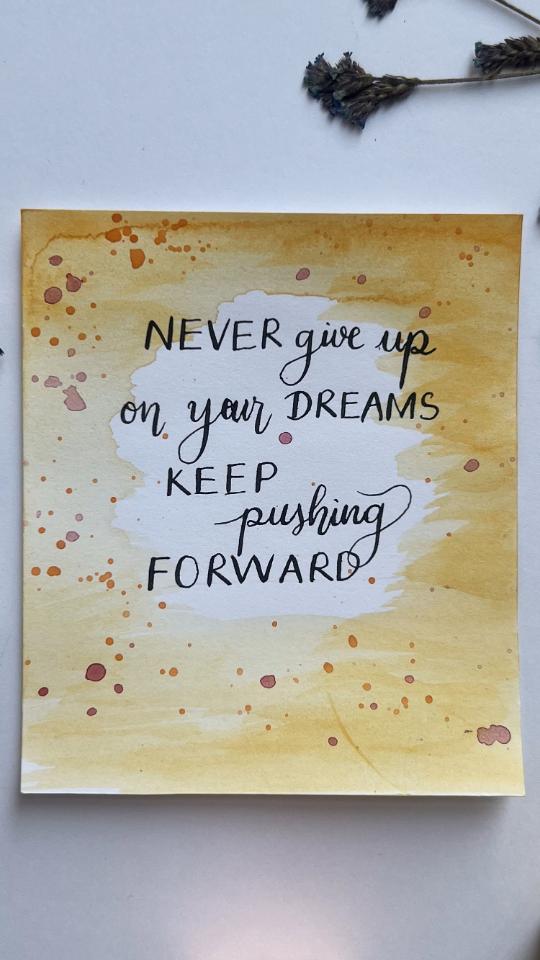 NEVER give up
on your DREAMS
KEEP
pushing
FORWARD